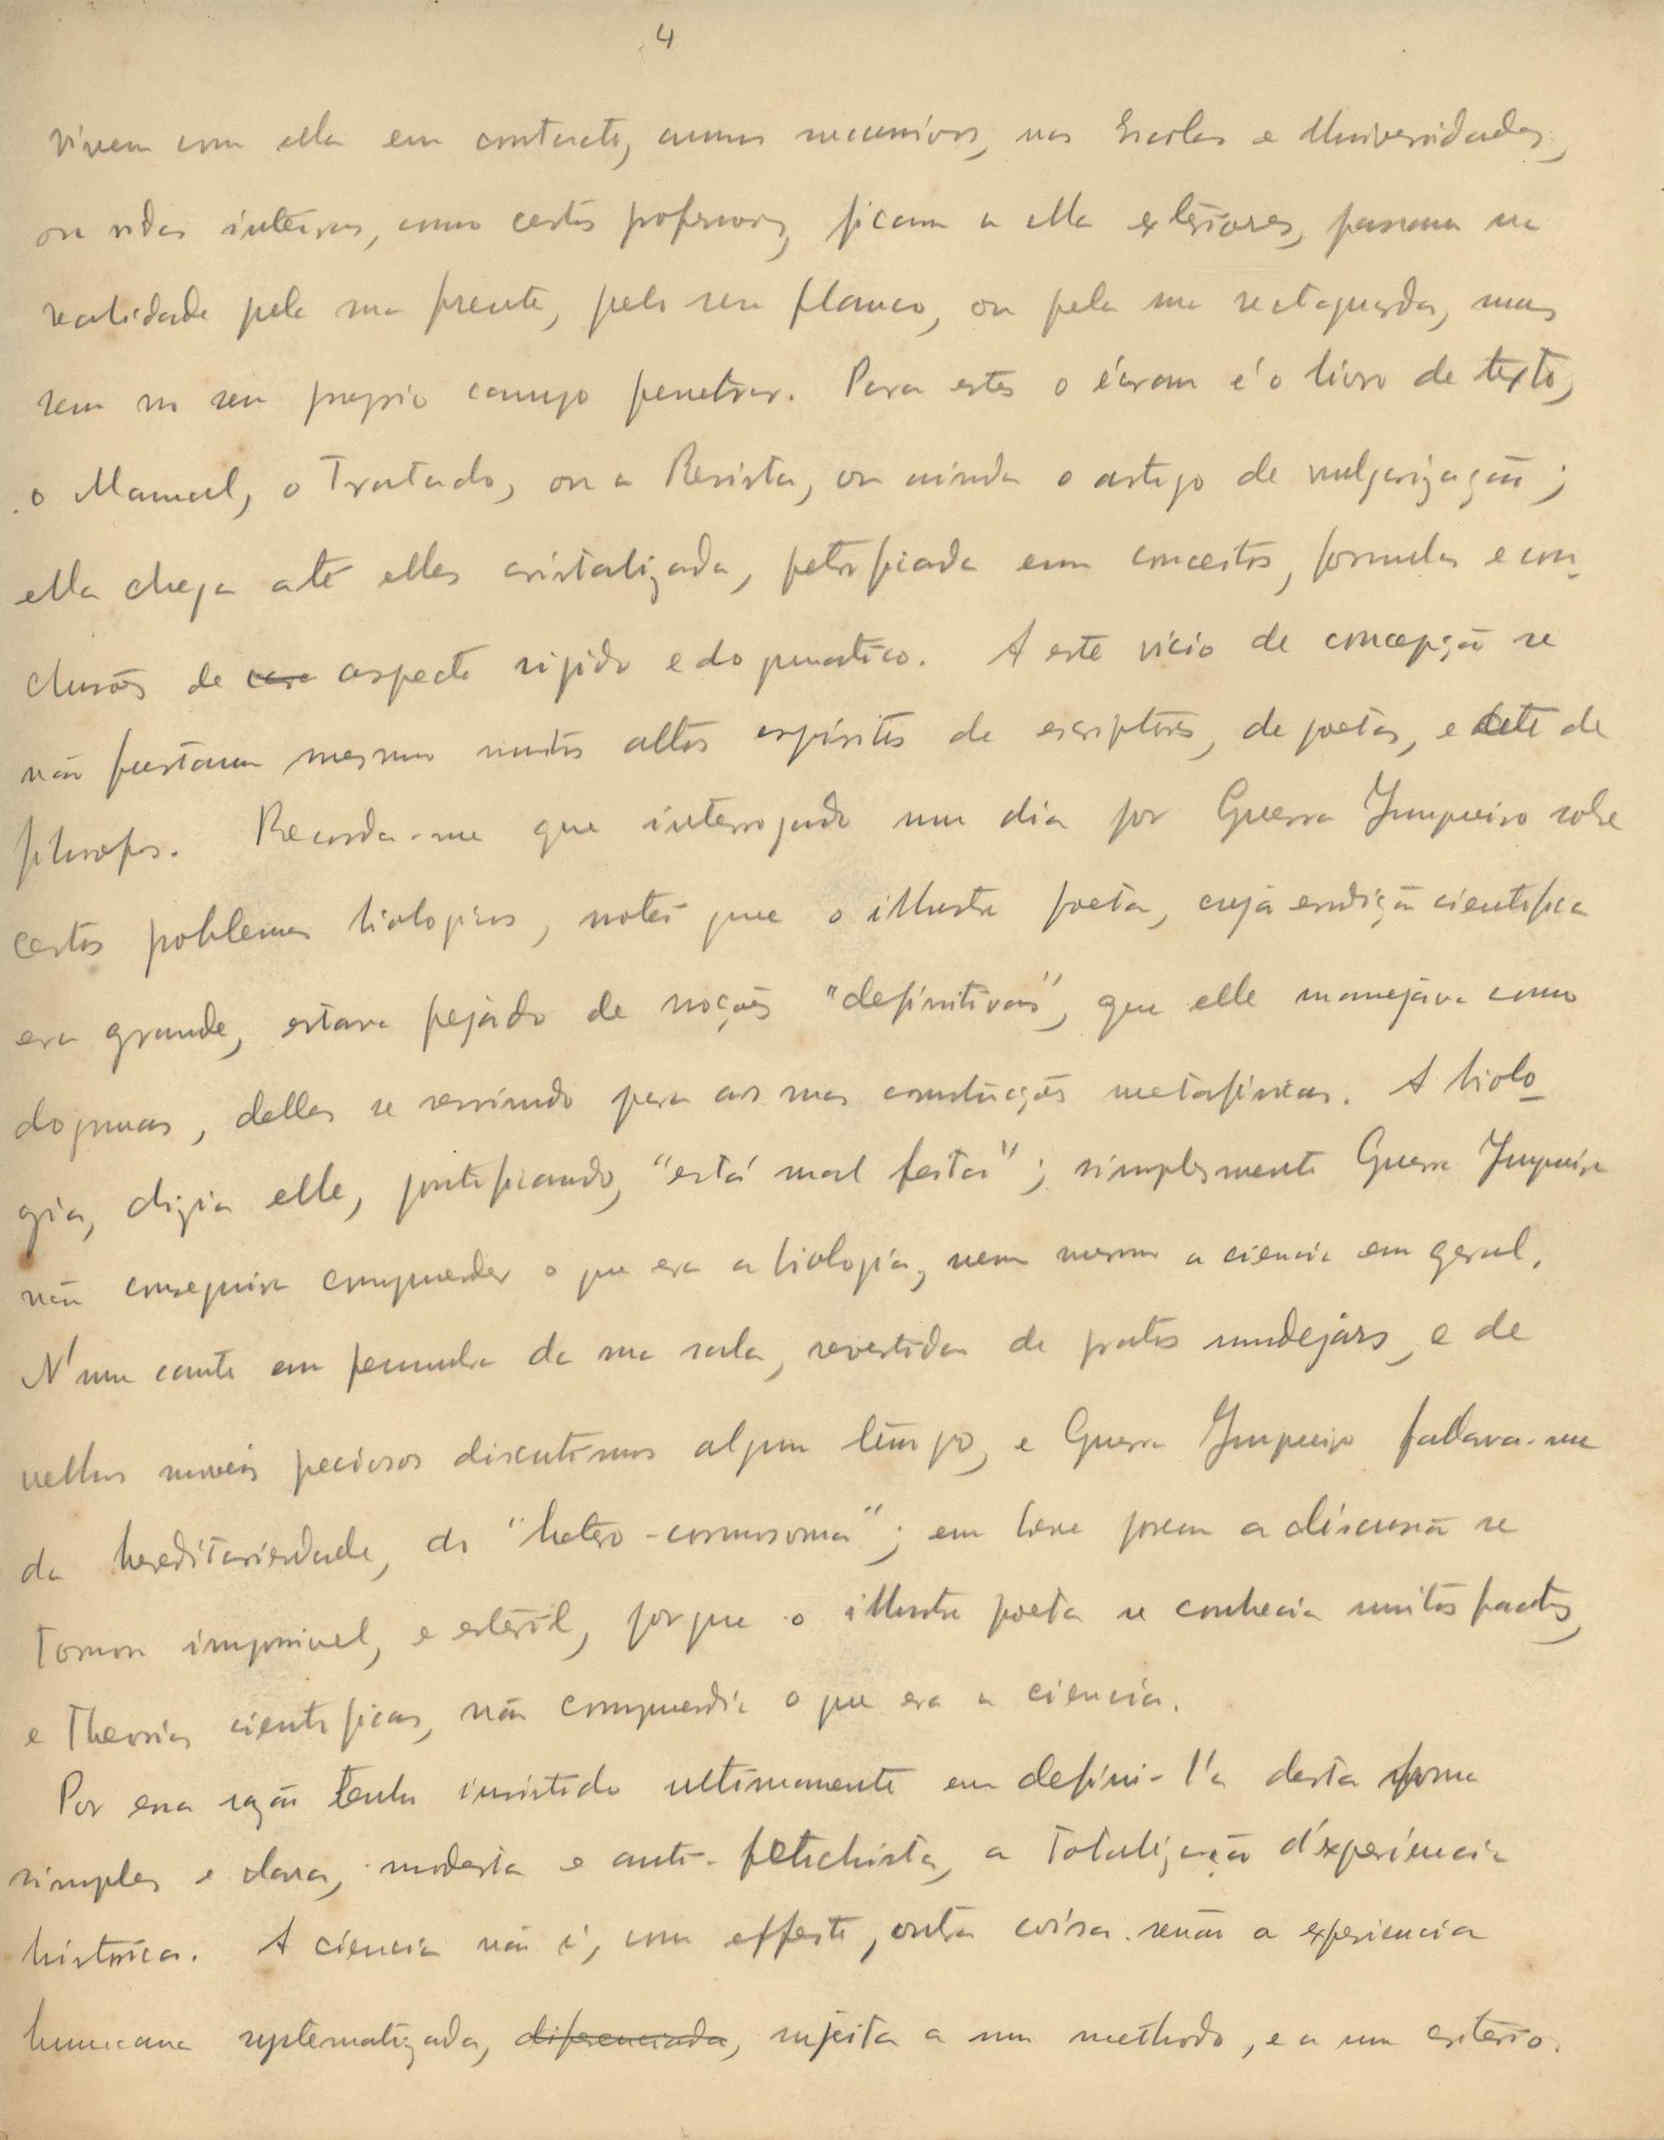 4
vivem com ella em contacto, annos successivos, nas Escolas e Universidades,
ou vidas inteiras, como certos professores, ficam a ella exteriores, passam na
realidade pela sua frente, pelo seu flanco, ou pela sua rectaguarda, mas
sem no seu proprio campo penetrar. Para estes o écran é o livro de texto,
o Manual, o Tratado, ou a Revista, ou ainda o artigo de vulgarização;
ella chega até elles cristalizada, petrificada em conceitos, formulas e con-
clusões de aspecto rigido e dogmatico. A este vicio de concepção se
não furtaram mesmo muitos altos espiritos de escriptores, de poetas, e até de
filosofos. Recorda-me que interrogado um dia por Guerra Junqueiro sobre
certos problemas biologicos, notei que o illustre poeta, cuja erudição cientifica
era grande, estava pejado de noções "definitivas", que elle manejava como
dogmas, dellas se servindo para as suas construcções metafisicas. A biolo-
gia, dizia elle, pontificando, "está mal feita"; simplesmente Guerra Junqueiro
não conseguira comprender o que era a biologia, nem mesmo a ciencia em geral.
N'um canto em penumbra da sua sala, revestida de pratos mudejars, e de
velhos moveis preciosos discutimos algum tempo, e Guerra Junqueiro fallava-me
da hereditariedade, do "hetero-cromosoma"; em breve porem a discussão se
tornou impossivel, e esteril, porque o illustre poeta se conhecia muitos factos,
e Theorias cientificas, não comprendia o que era a ciencia.
Por essa razão tenho insistido ultimamente em defini-l'a desta forma
simples e clara, modesta e anti-fetichista, a totalização d'experiencia
historica. A ciencia não é, com effeito, outra coisa senão a experiencia
humana systematizada, diferenciada, sujeita a um methodo, e a um criterio.